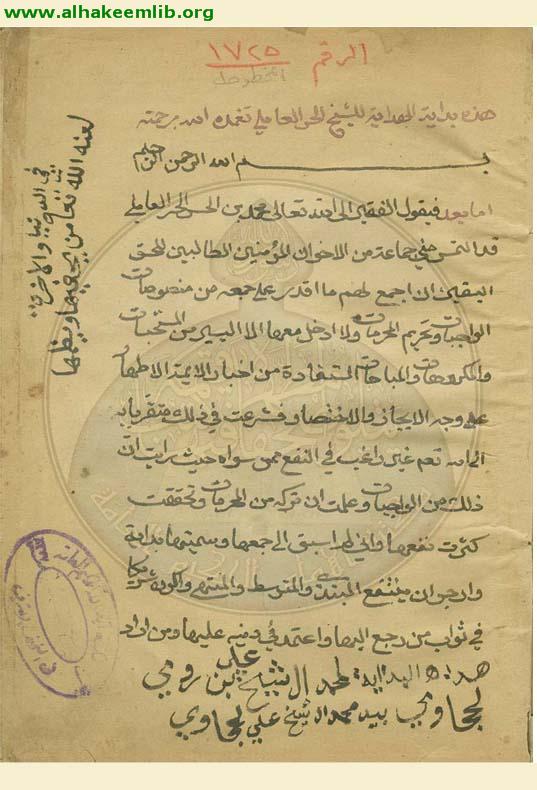 www.alhakeemlib.org
الرقم ١٧٢٥
المخطوطات
هذه بداية الهداية للشيخ الحر العاملي تغمده الله برحمته
بسم الله الرحمن الرحيم
اما بعد فيقول الفقير الى الله تعالى محمد بن الحسن الحر العاملي
قد التمس مني جماعة من الاخوان المؤمنين الطالبين للحق
اليقين ان اجمع لهم ما اقدر على جمعه من منصوصات
الواجبات وتحريم المحرمات ولا ادخل معها الا اليسير من المستحبات
والمكروهات والمباحات المستفادة من اخبار الايمة الاطهار
على وجه الايجاز والاختصار فشرعت في ذلك متقربا به
الى الله تعم غير راغب في النفع ممن سواه حيث رايت ان
ذلك من الواجبات وعلمت ان تركه من المحرمات وتحققت
كثرت نفعها واني لم اسبق الى جمعها وسميتها بداية
وارجو ان ينتفع المبتدي والمتوسط والمنتهي واكون شريكا
في ثواب من رجع اليها واعتمد عليها ومن اراد
هداة البداية لمحمد ال الشيخ علي بن رومي
لجاوي بيد محمد ال شيخ علي لجاوي
لعنه الله تعا من
في الدنيا والاخرة